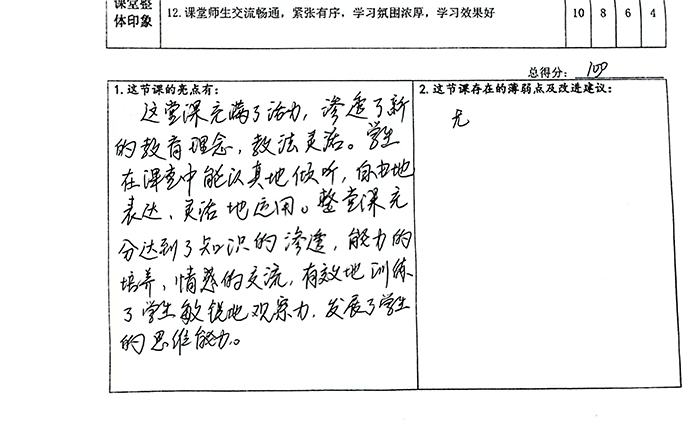 课堂整
体印象
12. 课堂师生交流畅通，紧张有序，学习氛围浓厚，学习效果好
10 8 6 4
总得分：100
1. 这节课的亮点有：
这堂课充满了活力，渗透了新
的教育理念，教法灵活。学生
在课堂中能认真地倾听，自由地
表达、灵活地运用。整堂课充
分达到了知识的渗透，能力的
培养，情感的交流，有效地训练
了学生敏锐地观察力，发展了学生
的思维能力。
2. 这节课存在的薄弱点及改进建议：
无